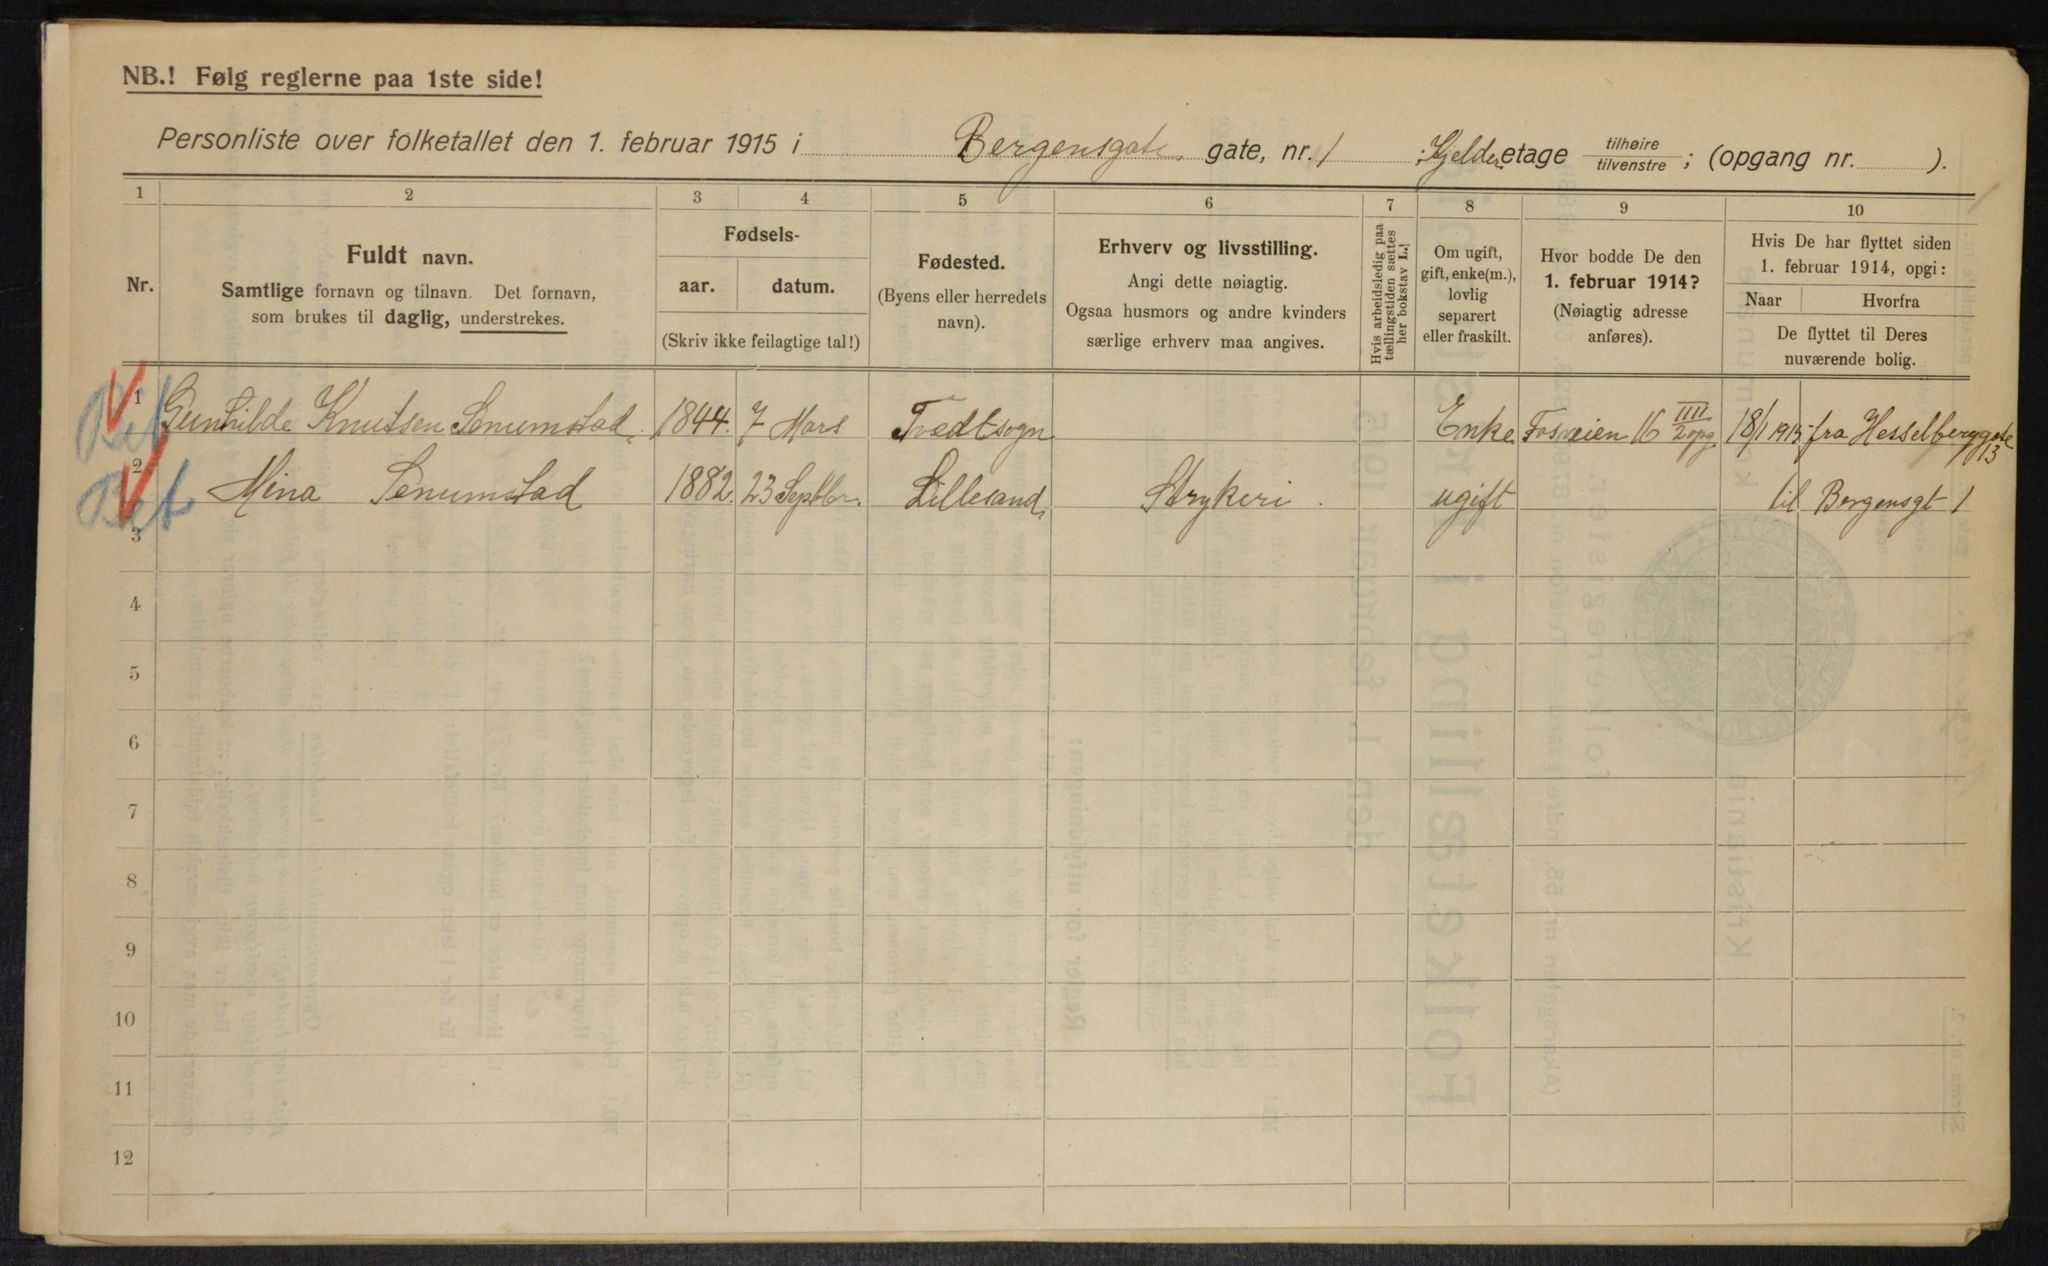 NB.! Følg reglerne paa 1ste side!
Personliste over folketallet den 1. februar 1915 i Bergensgate gate, nr. 1 Kjelder etage tilhøire / tilvenstre ; (opgang nr. ).
1 2 3 4 5 6 7 8 9 10
Nr.
Fuldt navn.
Samtlige fornavn og tilnavn. Det fornavn,
som brukes til daglig, understrekes.
Fødsels-
aar. datum.
(Skriv ikke feilagtige tal!)
Fødested.
(Byens eller herredets
navn).
Erhverv og livsstilling.
Angi dette nøiagtig.
Ogsaa husmors og andre kvinders
særlige erhverv maa angives.
Hvis arbeidsledig paa
tællingstiden sættes
her bokstav L.!
Om ugift,
gift, enke(m.),
lovlig
separert
eller fraskilt.
Hvor bodde De den
1. februar 1914?
(Nøiagtig adresse
anføres).
Hvis De har flyttet siden
1. februar 1914, opgi:
Naar Hvorfra
De flyttet til Deres
nuværende bolig.
1 Gunhilde Knutsen Senumstad. 1844. 7 Mars Tvedtsogn Enke Fosveien 16 IIII / 2 opg. 18/1 1915 fra Hesselberggate 13
2 Mina Senumstad 1882. 23 Septbr. Lillesand. Strykeri. ugift til Bergensgt 1
Bet
Bet
3
4
5
6
7
8
9
10
11
12